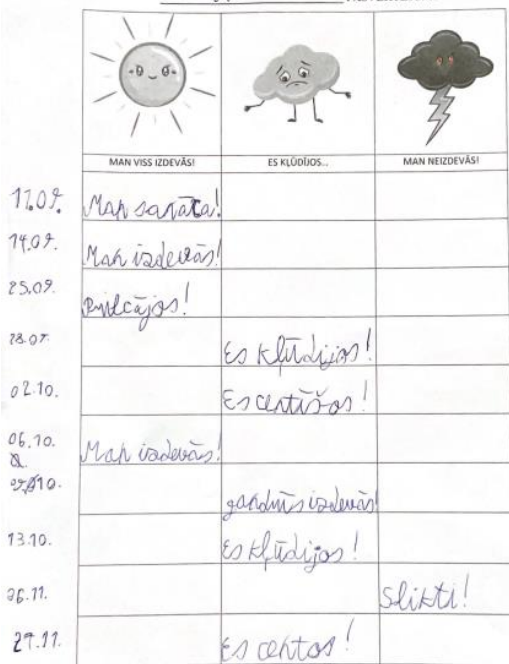 MAN VISS IZDEVĀS! ES KĻŪDĪJOS... MAN NEIZDEVĀS!
11.09. Man sanāca!
14.09. Man izdevās!
25.09. !
28.09. Es kļūdījos!
02.10. Es centīšos!
06.10. Man izdevās!
10. gandrīs izdevās!
13.10. Es kļūdījos!
26.11. Slikti!
27.11. Es centos!